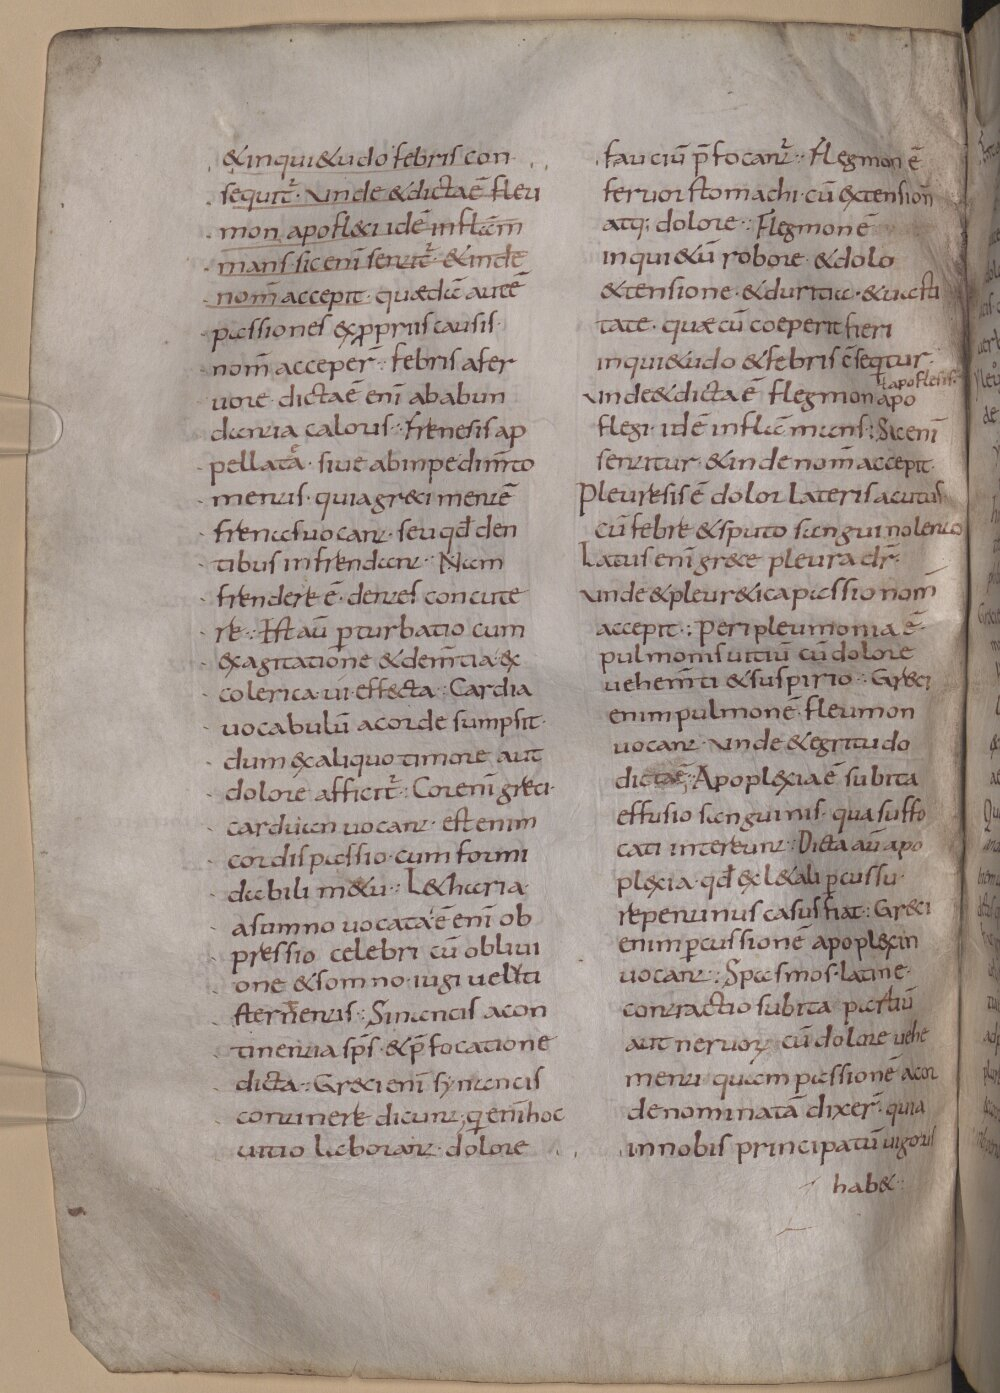 &inqui&udo febris con
sequit᷑. unde &dictaē fleu
mon. apofl&i idē inflam
mans. sic enī serit᷑. &inde
nom̄ accepit. quędā autē
passiones ex ppriis causis.
nom̄ acceper̄. febris afer
uore dictaē enī ababun
dantia caloris. Frenesis ap
pellata ē. siue abinpedim̄to
mentis. quia gręci mentē
frenas uocant. seu qđ den
tibus infrendant. Nam
frendere ē. dentes concute
re. Est aū p̱turbatio cum
exagitatione &dem̄tia ex
colerica ui effecta. Cardia
uocabulū acorde sumpsit.
dum exaliquo timore aut
dolore afficit᷑. Cor enī gręci.
cardian uocant. est enim
cordis passio. cum formi
dabili m&u. L&hargia
asumno uocata ē enī ob
pressio celebri cū obliui
one &somno iugi uelut
stertentis. Sinancis acon
tinentia sp̄s. &p̄focatione
dicta. Greci enī synancis
continere dicunt. q enī hoc
uitio laborant. dolore
fauciū p̄focant᷑. Flegmon ē
feruor stomachi. cū extension̄
atq; dolore. Flegmon ē
inqui &ū robore &dolo
&tensione. &duritia. &uasti
tate. quę cū coeperit fieri
inqui&udo &febris c̄seqitur.
ł apoflesis.
unde&dicta ē flegmon apo
flegi. idē inflammans. Sic enī
seritur. &inde nom̄ accepit.
Pleuresis ē dolor lateris acutus
cū febre &sputo sanguinolento
Latus enī gręce pleura dr̄.
unde &pleur&ica passio nom̄
accepit. Peripleumonia ē.
pulmonis uitiū cū dolore
uehem̄ti &suspirio. Gręci
enim pulmonē. fleumon
uocant. unde &egritudo
dicta ē. Apoplexia ē subita
effusio sanguinis. qua suffo
cati intereunt. Dicta aū apo
plexia. qđ ex l&ali p̱cussu.
repentinus casus fiat. Gręci
enim p̱cussionē apoplexin
uocant. Spasmos. latine.
contractio subita partiū
aut neruoꝝ cū dolore uehe
menti. quam passionē acor
denominatā dixer̄. quia
innobis principatū uigoris
hab&.